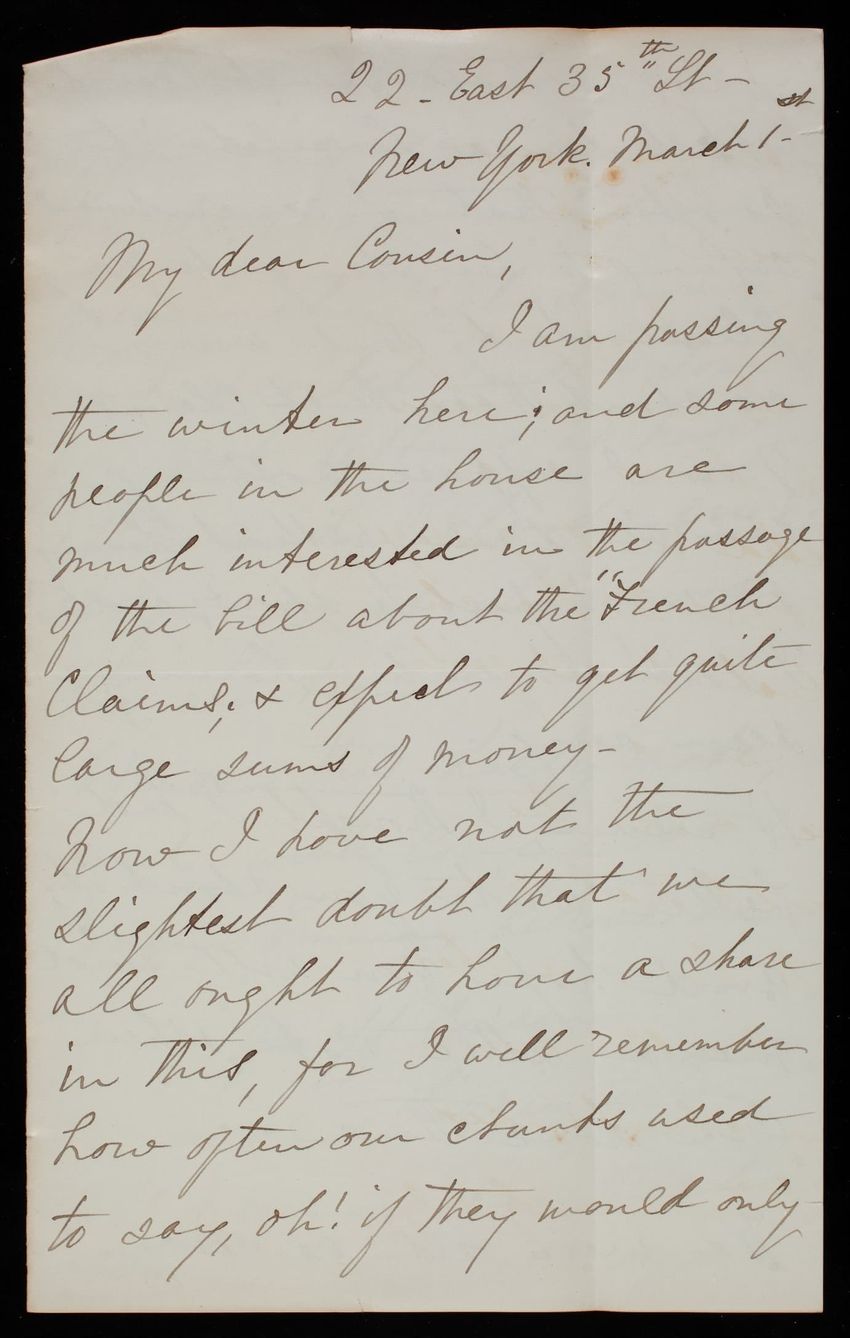 22 - East 35th St -
New York. March 1st
My dear Cousin,
I am passing
the winter here; and some
people in the house are
much interested in the passage
of the bill about the "French
Claims; & expect to get quite
large sums of money -
Now I have not the
slightest doubt that we
all ought to have a share
in this, for I well remember
how often our Aunts used
to say, oh! if they would only